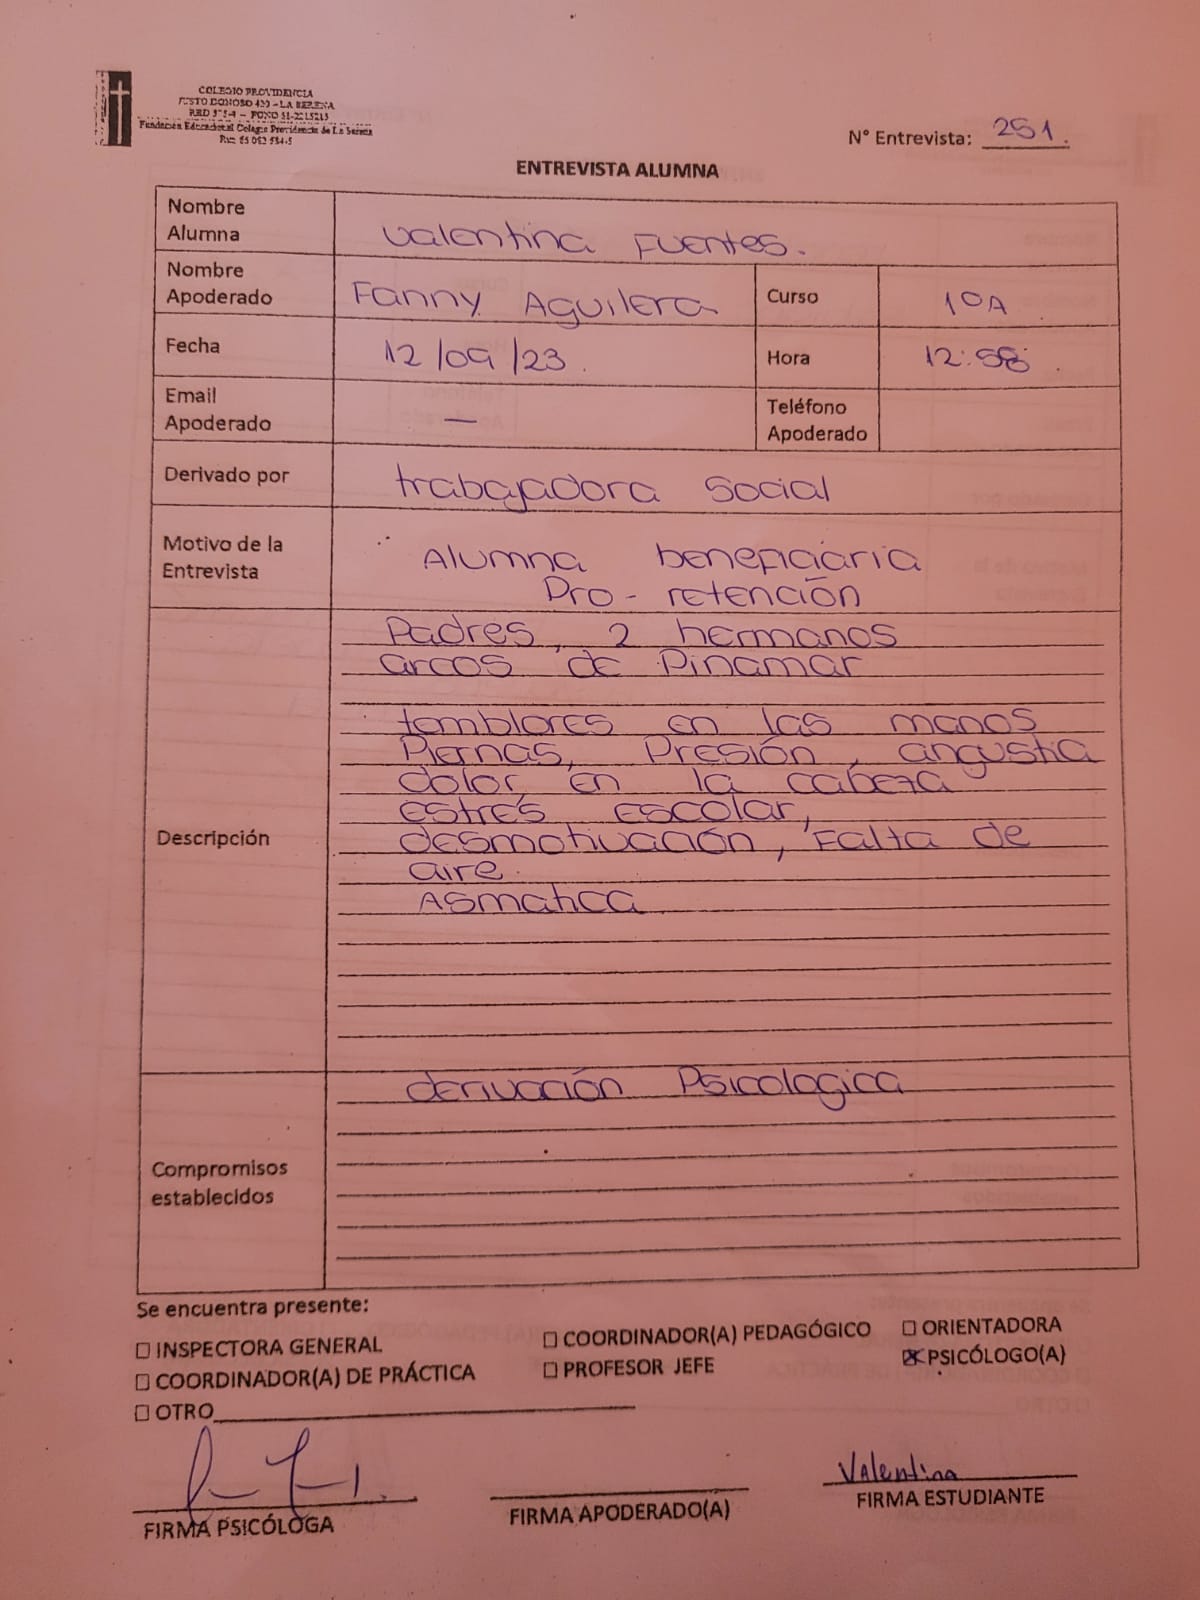 COLEGIO PROVIDENCIA
JUSTO DONOSO 420 - LA SERENA
RBD - FONO 51-2215215
Fundación Educacional Colegio Providencia de La Serena
Rut:
N° Entrevista: 251.
ENTREVISTA ALUMNA
Nombre Alumna
Valentina Fuentes.
Nombre Apoderado
Fanny Aguilera
Curso
1ºA
Fecha
12/09/23.
Hora
12:58
Email Apoderado
—
Teléfono Apoderado
Derivado por
trabajadora Social
Motivo de la Entrevista
Alumna beneficiaria
Pro-retención
Descripción
Padres, 2 hermanos
arcos de Pinamar
tomblores en las manos
Piernas, Presión, angustia
dolor en la cabeza
estrés escolar,
desmotivación, Falta de
aire.
Asmatica
Compromisos establecidos
derivación Psicologica
Se encuentra presente:
☐ INSPECTORA GENERAL
☐ COORDINADOR(A) PEDAGÓGICO
☐ ORIENTADORA
☐ COORDINADOR(A) DE PRÁCTICA
☐ PROFESOR JEFE
☒ PSICÓLOGO(A)
☐ OTRO
Valentina
FIRMA PSICÓLOGA
FIRMA APODERADO(A)
FIRMA ESTUDIANTE